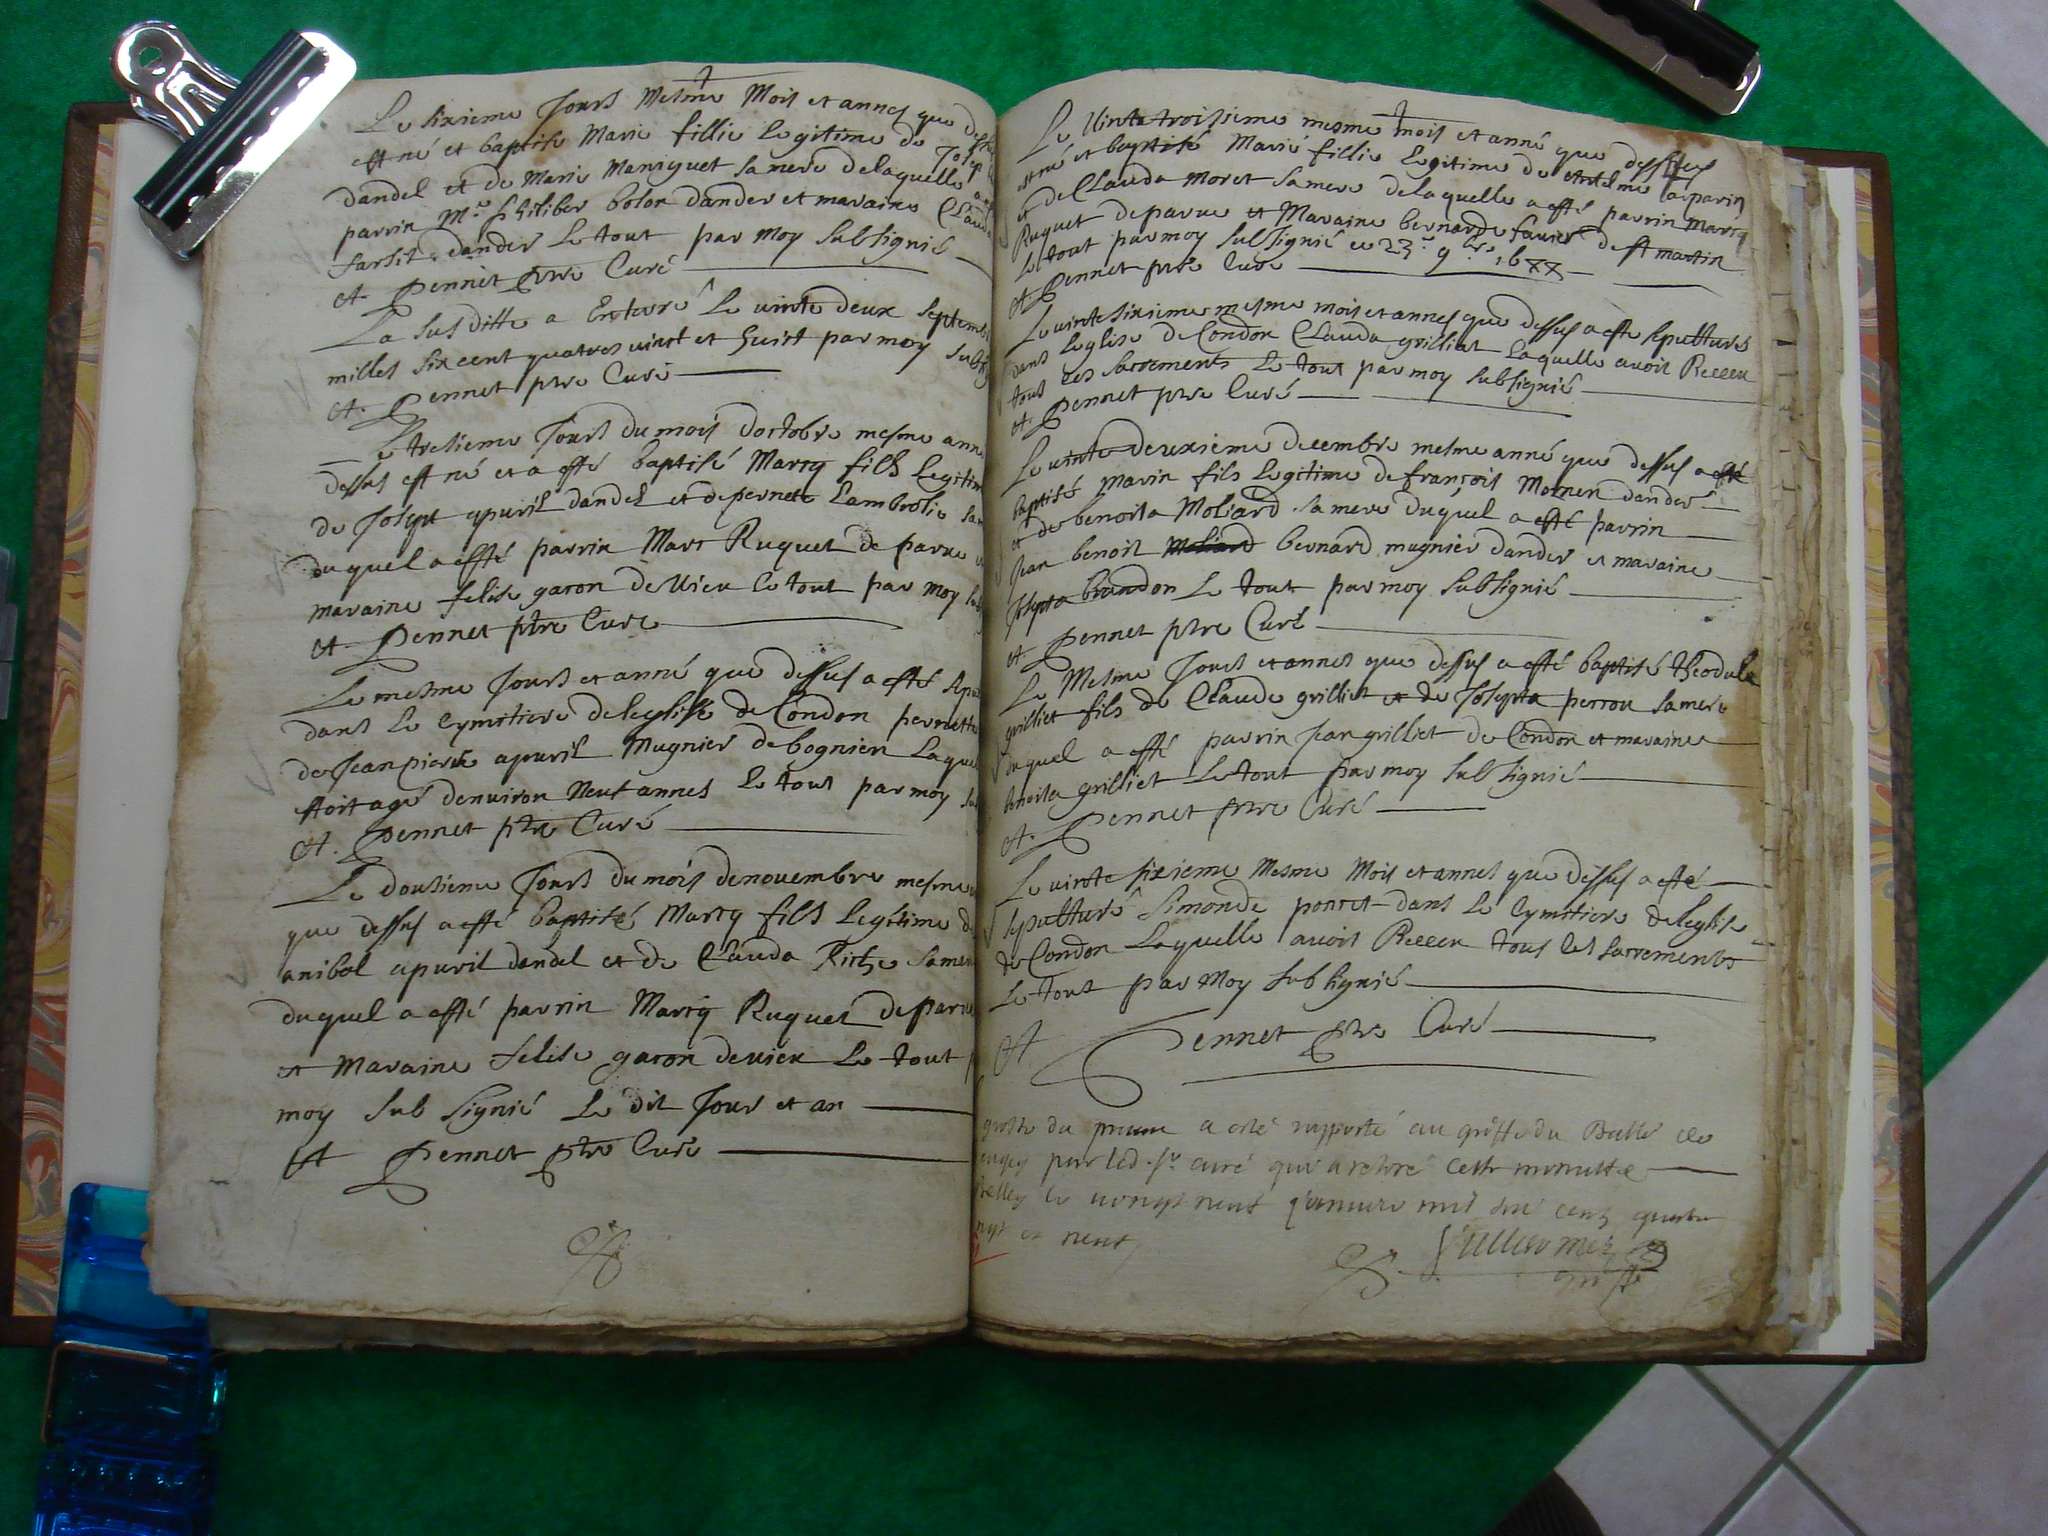 Le sixieme Jours Mesme Mois et annes que dessus
est né et baptise Marie fillie Legitime de Josep
dandel et de Marie Maniguet sa mere delaquelle a
parrin Mre philiber bolon dander et maraine Clauda
dander Le tout par moy subsignié
A. Pennet ptre Curé
La susditte a Enterré Le vinte deux septemb
milles six cent quatres vint et huict par moy subsig
A. Pennet ptre Curé
Le tresieme Jours du mois doctobre mesme anné
dessus est né et a esté baptisé Marcq fils Legitim
de Josept apuril dandel et de pernete Lambrolie sa
duquel a esté parrin Marc Ruquet de parue
maraine felise garon de Uieu le tout par moy
A. Pennet ptre Cure
Le mesme Jours et anné que dessus a esté sepu
dans Le Cymitiere deleglise de Condon pernette
de Jean pierre apuril Mugnier de bognien Laque
estoit agé denuiron Neuf annes Le tout par moy
A. Pennet ptre Curé
Le dousieme Jours du mois denouembre mesme
que dessus a esté baptisé Marcq fils Legitime d
anibal apuril dandel et de Clauda Riche sa mer
duquel a esté parrin Marcq Ruquet de parue
et Maraine felise garon deuieu Le tout p
moy sub signié Le dit Jour et an
A Pennet ptre Curé
Le Uinte troissieme mesme mois et anné que dessus
est né et baptisé Marie fillie Legitime de Antelme
et de Clauda Moret sa mere delaquelle a esté parrin Marcq
Ruquet de parue et Maraine bernarde fauier de st martin
Le tout par moy subsignié ce 23e 9bre 1688
A. Pennet ptre Cure
Le vinte sixieme mesme mois et annes que dessus a este sepultures
dans Leglise de Condon Clauda grilliet Laquelle auoit Receu
tous les sacrements Le tout par moy subsignié
A. Pennet ptre Curé
Le vinte deuxieme decembre mesme anné que dessus a esté
baptisé Marin fils Legitime de françois Mornen dander
et de benoita Moliard sa mere duquel a esté parrin
Jean benoit Moliard bernard mugnier dander et maraine
Josepta brandon Le tout par moy subsignié
A. Pennet ptre Curé
Le Mesme Jours et annes que dessus a esté baptisé theodule
grilliet fils de Claude grilliet et de Josepta perrou sa mere
duquel a esté parrin Jean grilliet de Condon et maraine
benoita grilliet Le tout par moy subsignié
A. Pennet ptre Curé
Le vinte sixieme Mesme Mois et annes que dessus a esté
sepulturé Simonde poncet dans Le Cymitiere deleglise
de Condon Laquelle auoit Receu tous les sacrements
Le tout par Moy subsignié
A Pennet ptre Curé
grosse du presant a esté rapporté au greffe du Balle de
bugey par led. sr curé qui a retiré cette minutte
Belley le vingt neuf Januier mil six cent quatre
vingt et neuf